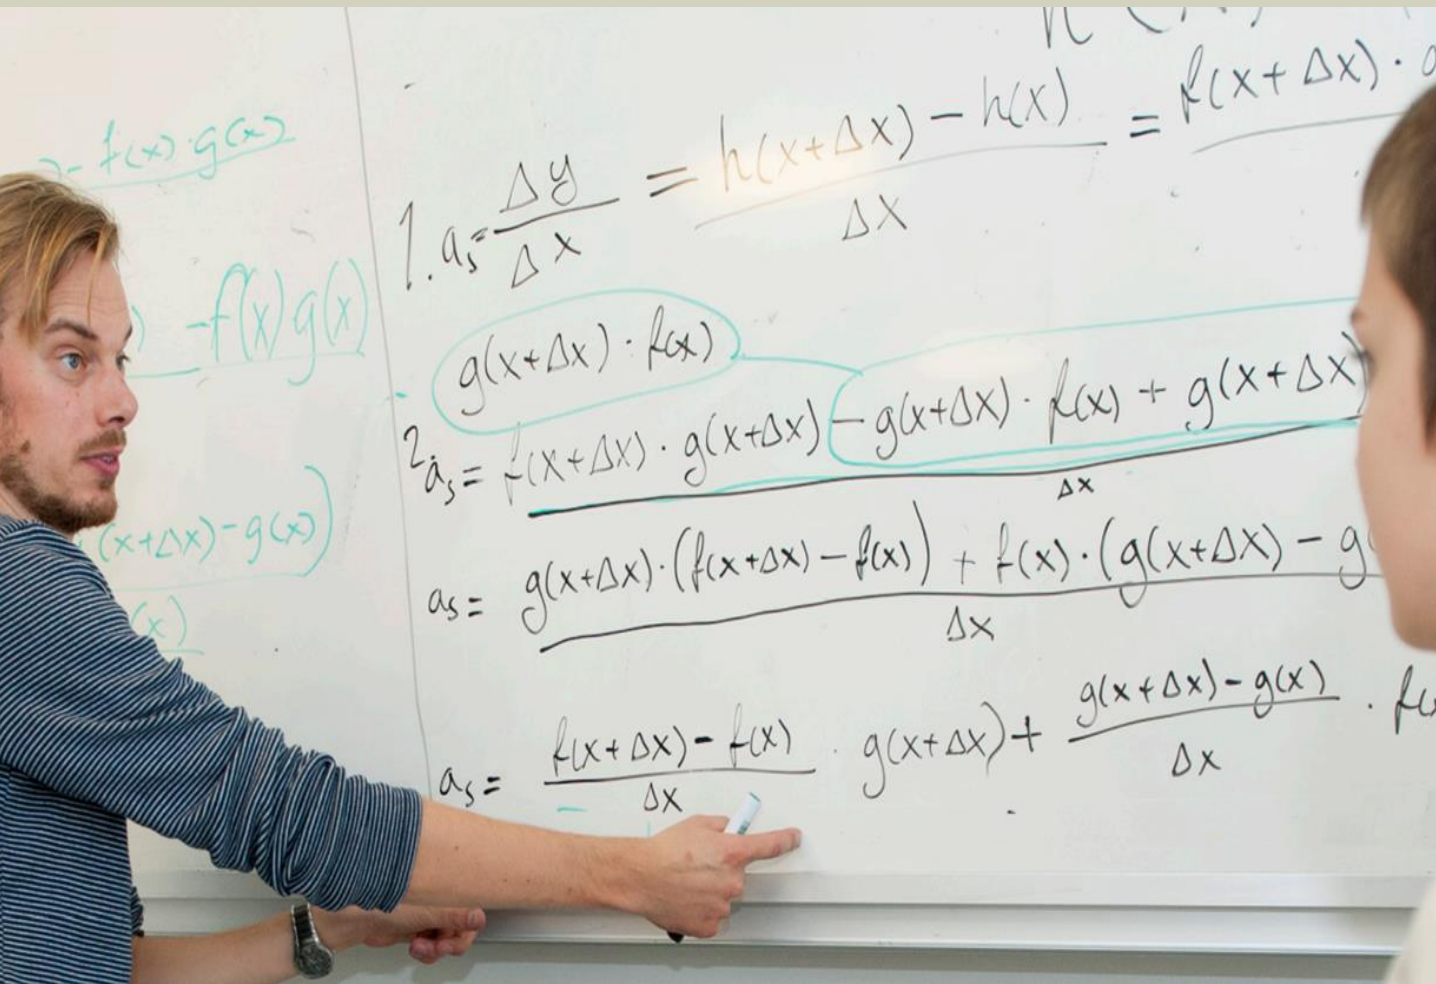 - f(x)·g(x)
-f(x)g(x)
(x+Δx)-g(x))
(x)
1. a_s = Δy/Δx = (h(x+Δx) - h(x))/Δx = f(x+Δx)·
g(x+Δx)·f(x)
2.
a_s = (f(x+Δx)·g(x+Δx) - g(x+Δx)·f(x) + g(x+Δx)/Δx
a_s = (g(x+Δx)·(f(x+Δx) - f(x)) + f(x)·(g(x+Δx) - g/Δx
a_s = (f(x+Δx) - f(x))/Δx · g(x+Δx) + (g(x+Δx) - g(x))/Δx · f(